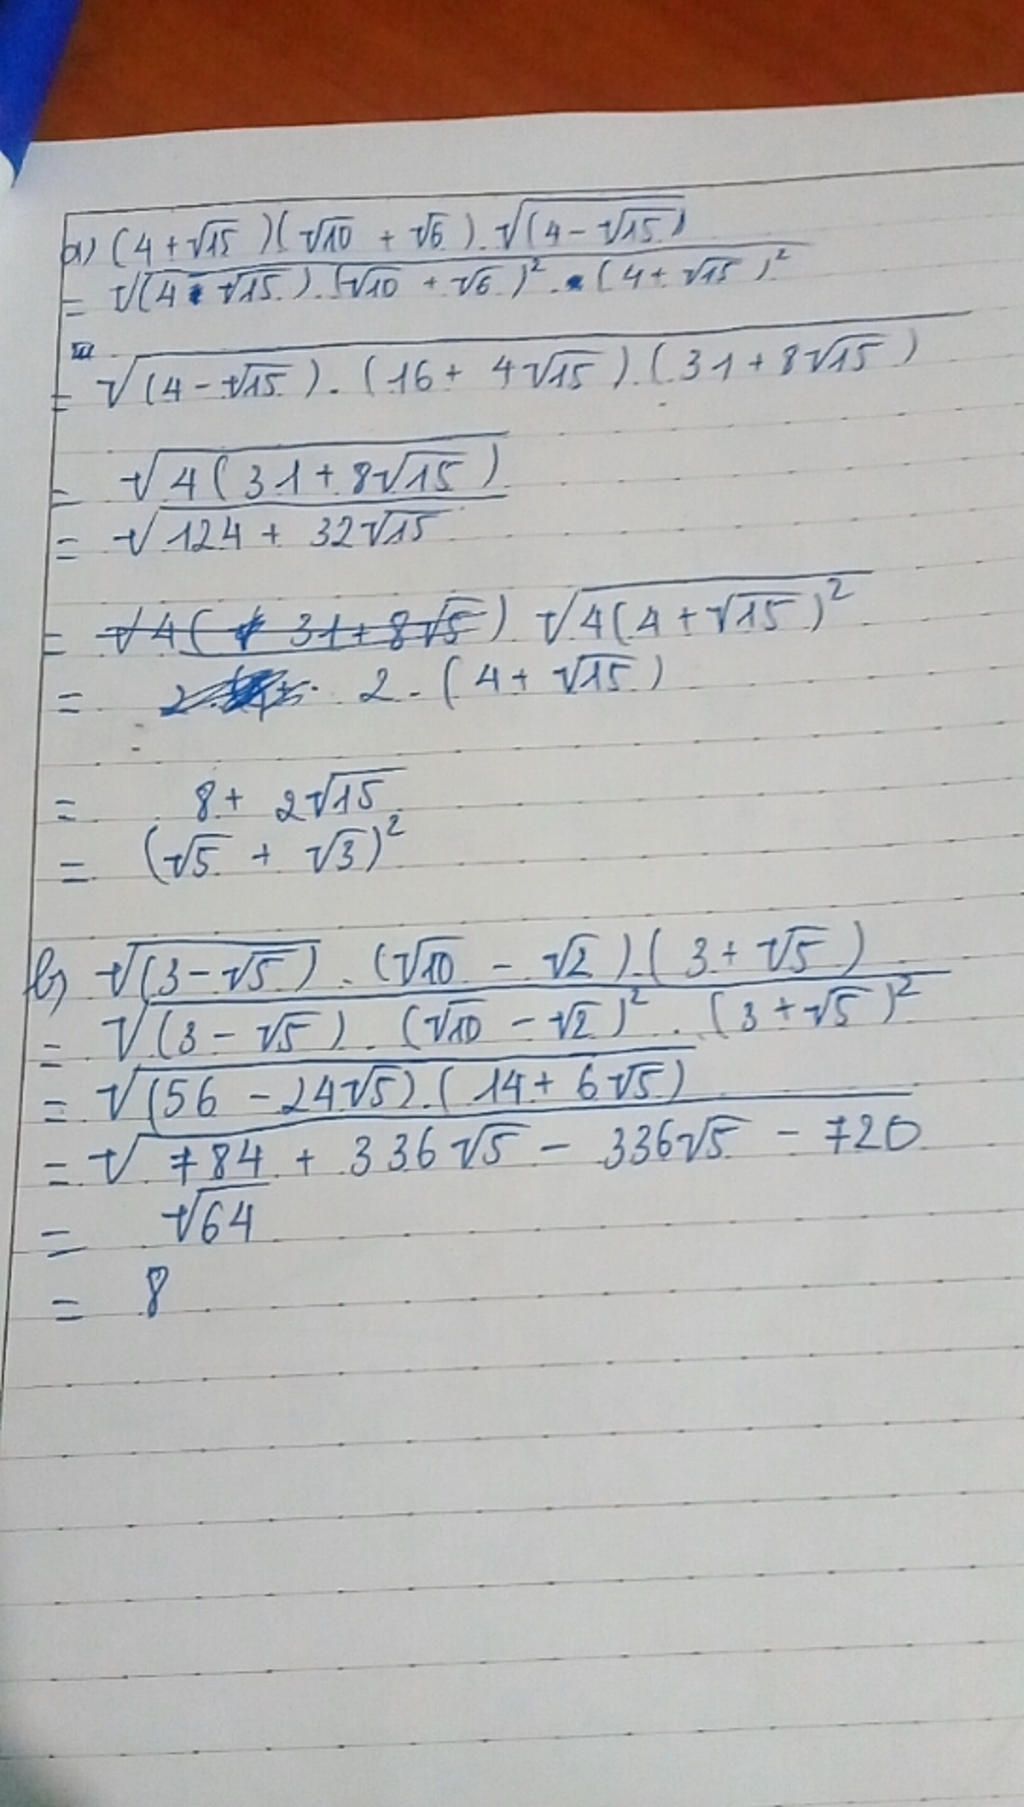 a) (4 + √15)(√10 + √6).√(4 - √15)
= √(4 - √15).(√10 + √6)².(4 + √15)²
= √(4 - √15).(16 + 4√15).(31 + 8√15)
= √4(31 + 8√15)
= √124 + 32√15
= √4(31 + 8√5) √4(4 + √15)²
= 2.(4 + √15)
= 8 + 2√15
= (√5 + √3)²
b) √(3 - √5).(√10 - √2)(3 + √5)
= √(3 - √5).(√10 - √2)².(3 + √5)²
= √(56 - 24√5).(14 + 6√5)
= √784 + 336√5 - 336√5 - 720
= √64
= 8